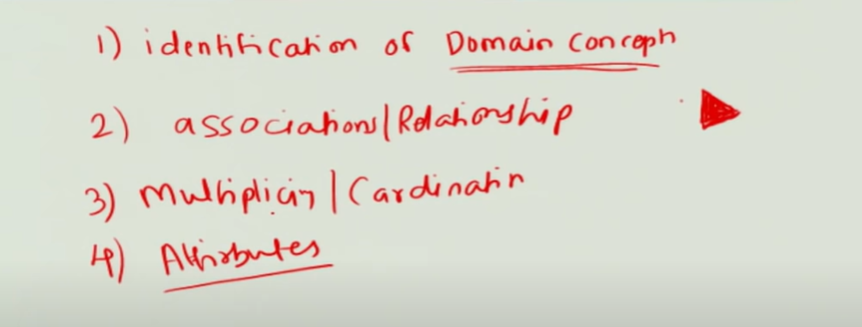 1) identification of Domain Concept
2) associations/Relationship
3) Multiplicity/Cardinality
4) Attributes